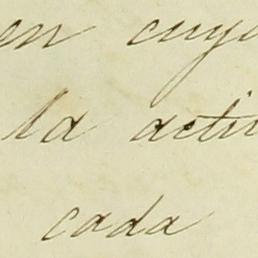 en cuyo
la acti
cada